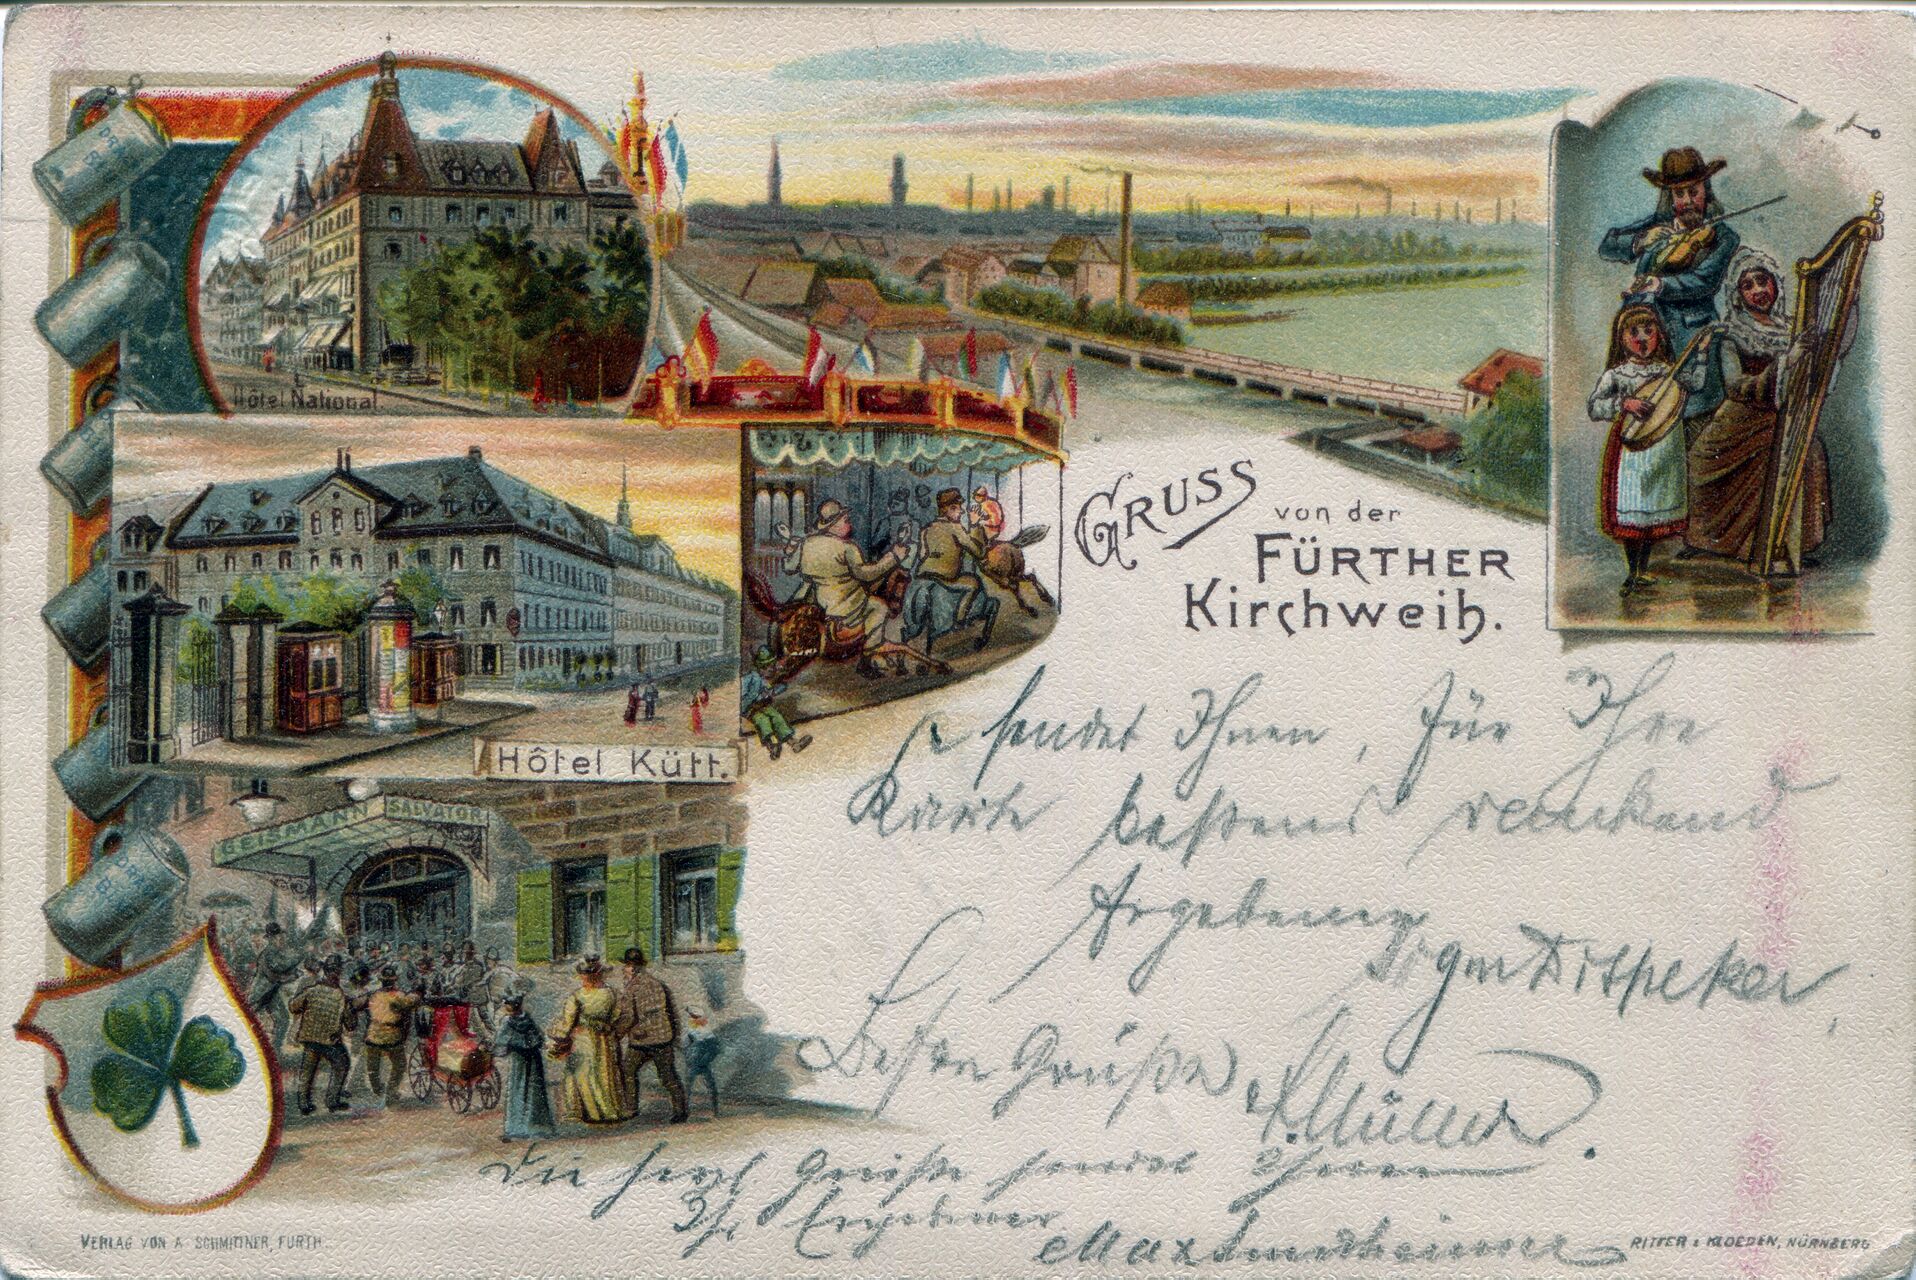 Hôtel National.
GRUSS
von der
FÜRTHER
Kirchweih.
Hôtel Kütt.
GEISMANN SALVATOR
sendet Ihnen, für Ihre
Karte bestens dankend
Ergebener
Besten Grüße
Müller
Die herzl Grüße sendet Ihnen
Ihr Ergebener
Max
VERLAG VON A. SCHMITTNER, FÜRTH.
RITTER & KLOEDEN, NÜRNBERG